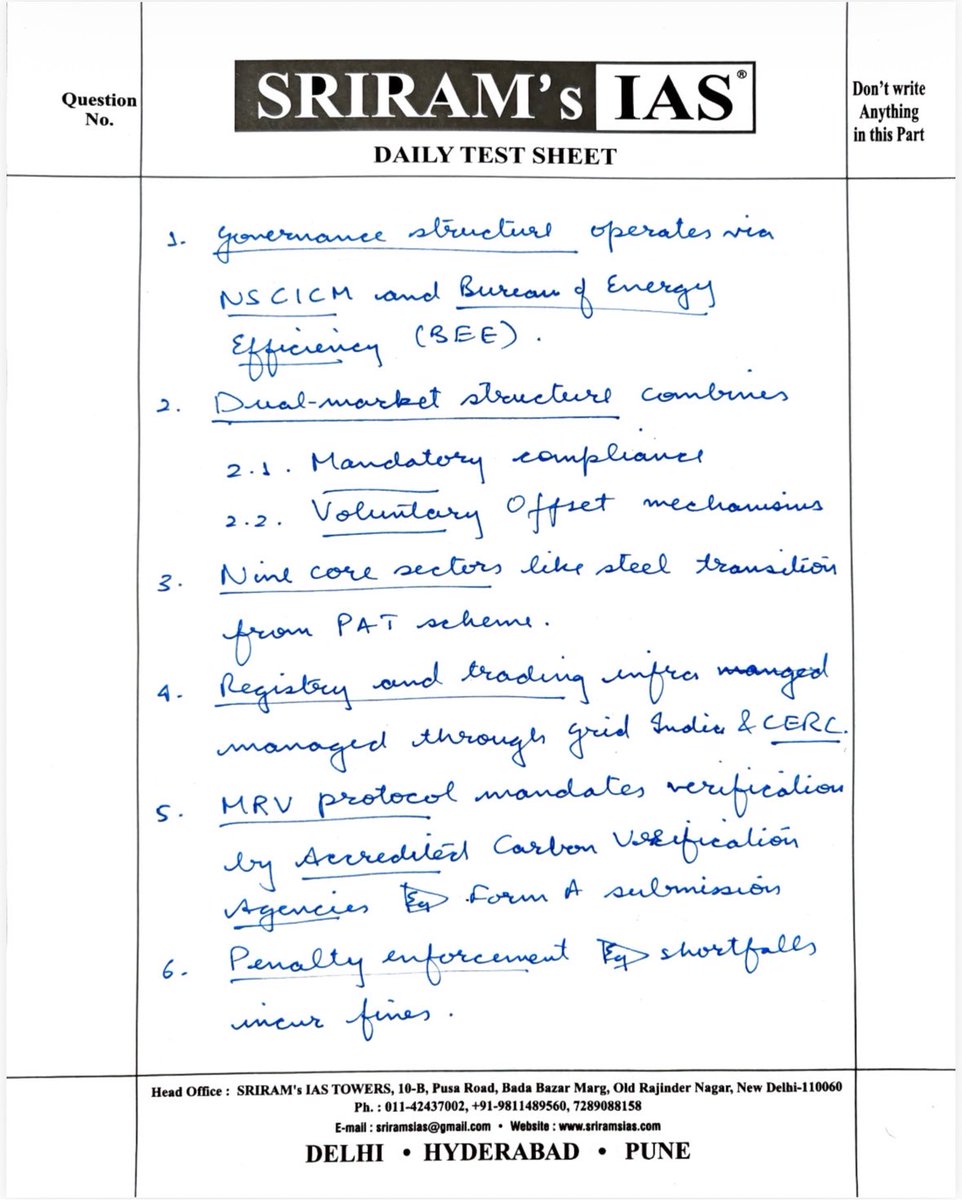 Question
No.
SRIRAM's IAS®
DAILY TEST SHEET
Don't write
Anything
in this Part
1. Governance structure operates via
NSCICM and Bureau of Energy
Efficiency (BEE).
2. Dual-market structure combines
2.1. Mandatory compliance
2.2. Voluntary Offset mechanisms
3. Nine core sectors like steel transition
from PAT scheme.
4. Registry and trading infra manged
managed through grid India & CERC.
5. MRV protocol mandates verification
by Accredited Carbon Verification
Agencies Eg Form A submission
6. Penalty enforcement Eg shortfalls
incur fines.
Head Office : SRIRAM's IAS TOWERS, 10-B, Pusa Road, Bada Bazar Marg, Old Rajinder Nagar, New Delhi-110060
Ph. : 011-42437002, +91-9811489560, 7289088158
E-mail : sriramsias@gmail.com • Website : www.sriramsias.com
DELHI • HYDERABAD • PUNE